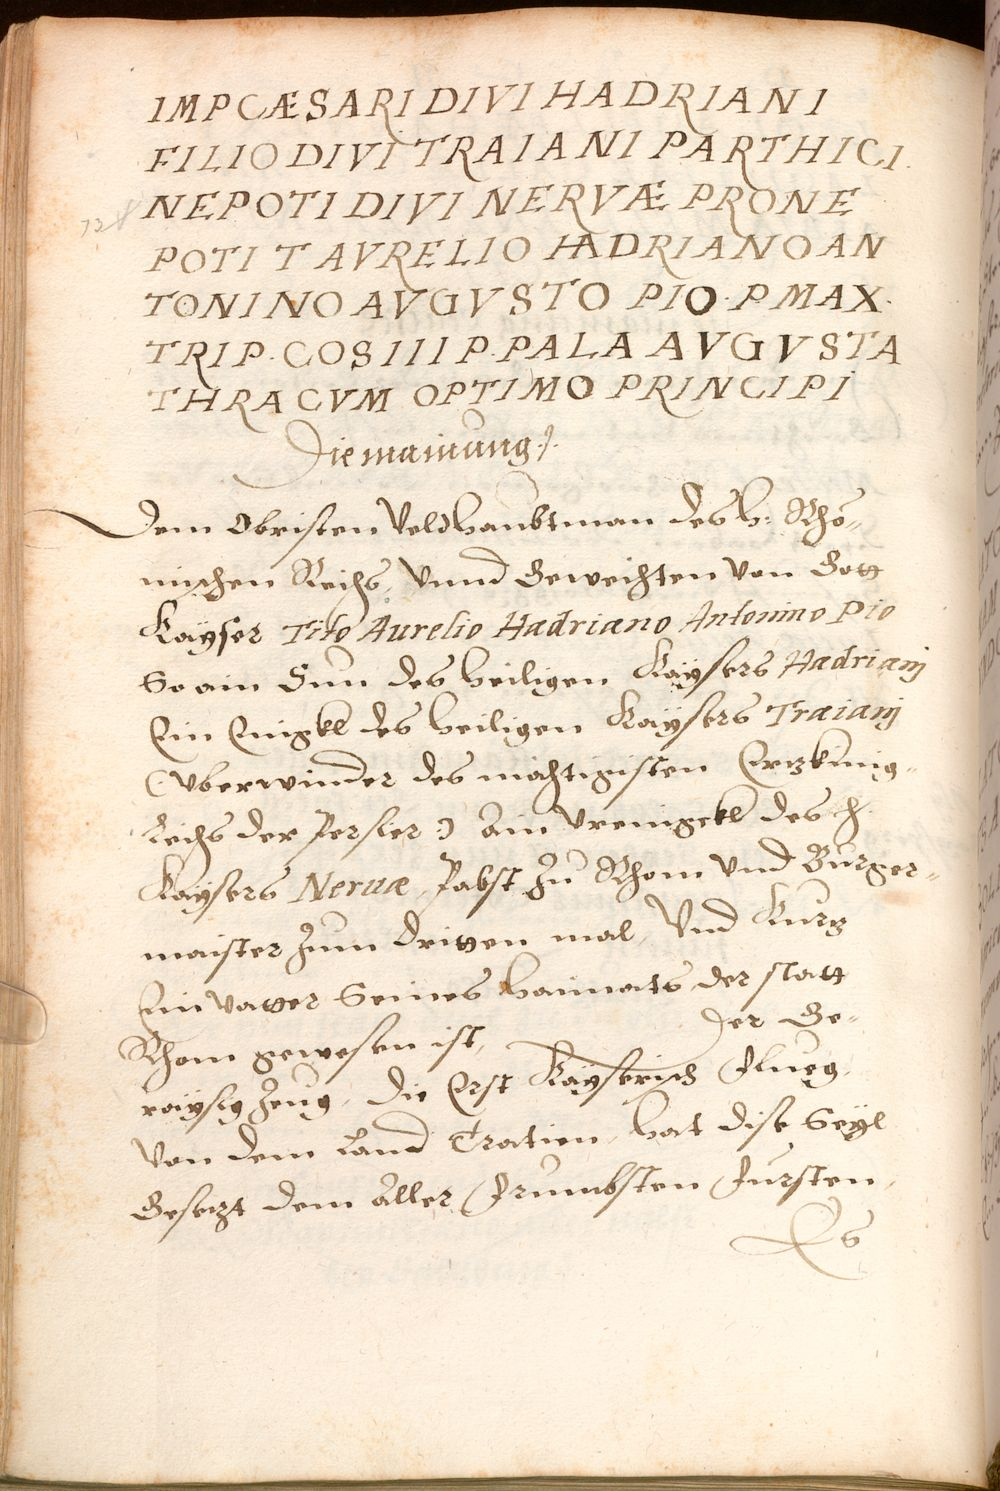 IMP CÆSARI DIVI HADRIANI
FILIO DIVI TRAIANI PARTHICI.
NEPOTI DIVI NERVÆ PRONE
POTI T AVRELIO HADRIANO AN
TONINO AVGVSTO PIO. P MAX.
TRI P. COS III P. P ALA AVGVSTA
THRACVM OPTIMO PRINCIPI
Die mainung.
Dem Obristen Veldhaubtman des h: Rhö-
mischen Reichs, Vnnd Geweichten von Gott
Kayser Tito Aurelio Hadriano Antonino Pio
So ain Sun des heiligen Kaysers Hadrianj
Ein Enigkl des heiligen Kaysers Traianj
(Vberwinder des mächtigisten Ertzkünig-
Reichs der Persier:) ain Vrenigckl des h.
Kaysers Neruæ, Pabst zu Rhom Vnd Burger-
maister zum dritten mal, Vnd Kurtz
Ein Vatter Seines haimats der statt
Rhom gewesen ist, Der Ge-
raysig Zeug, Die Erst Kayserisch Flueg,
Von dem Land Tratien, hat dise Seÿl
Gesetzt dem aller Frumbsten Fursten,
Es